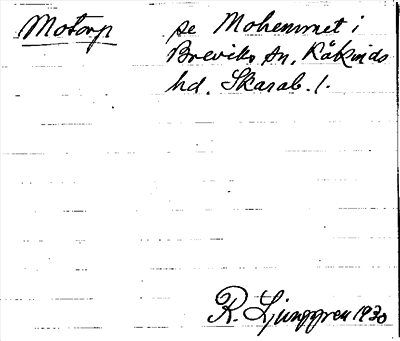 Motorp se Mohemmet i
Breviks sn, Kåkinds
hd. Skarab. l.
R. Ljunggren 1930